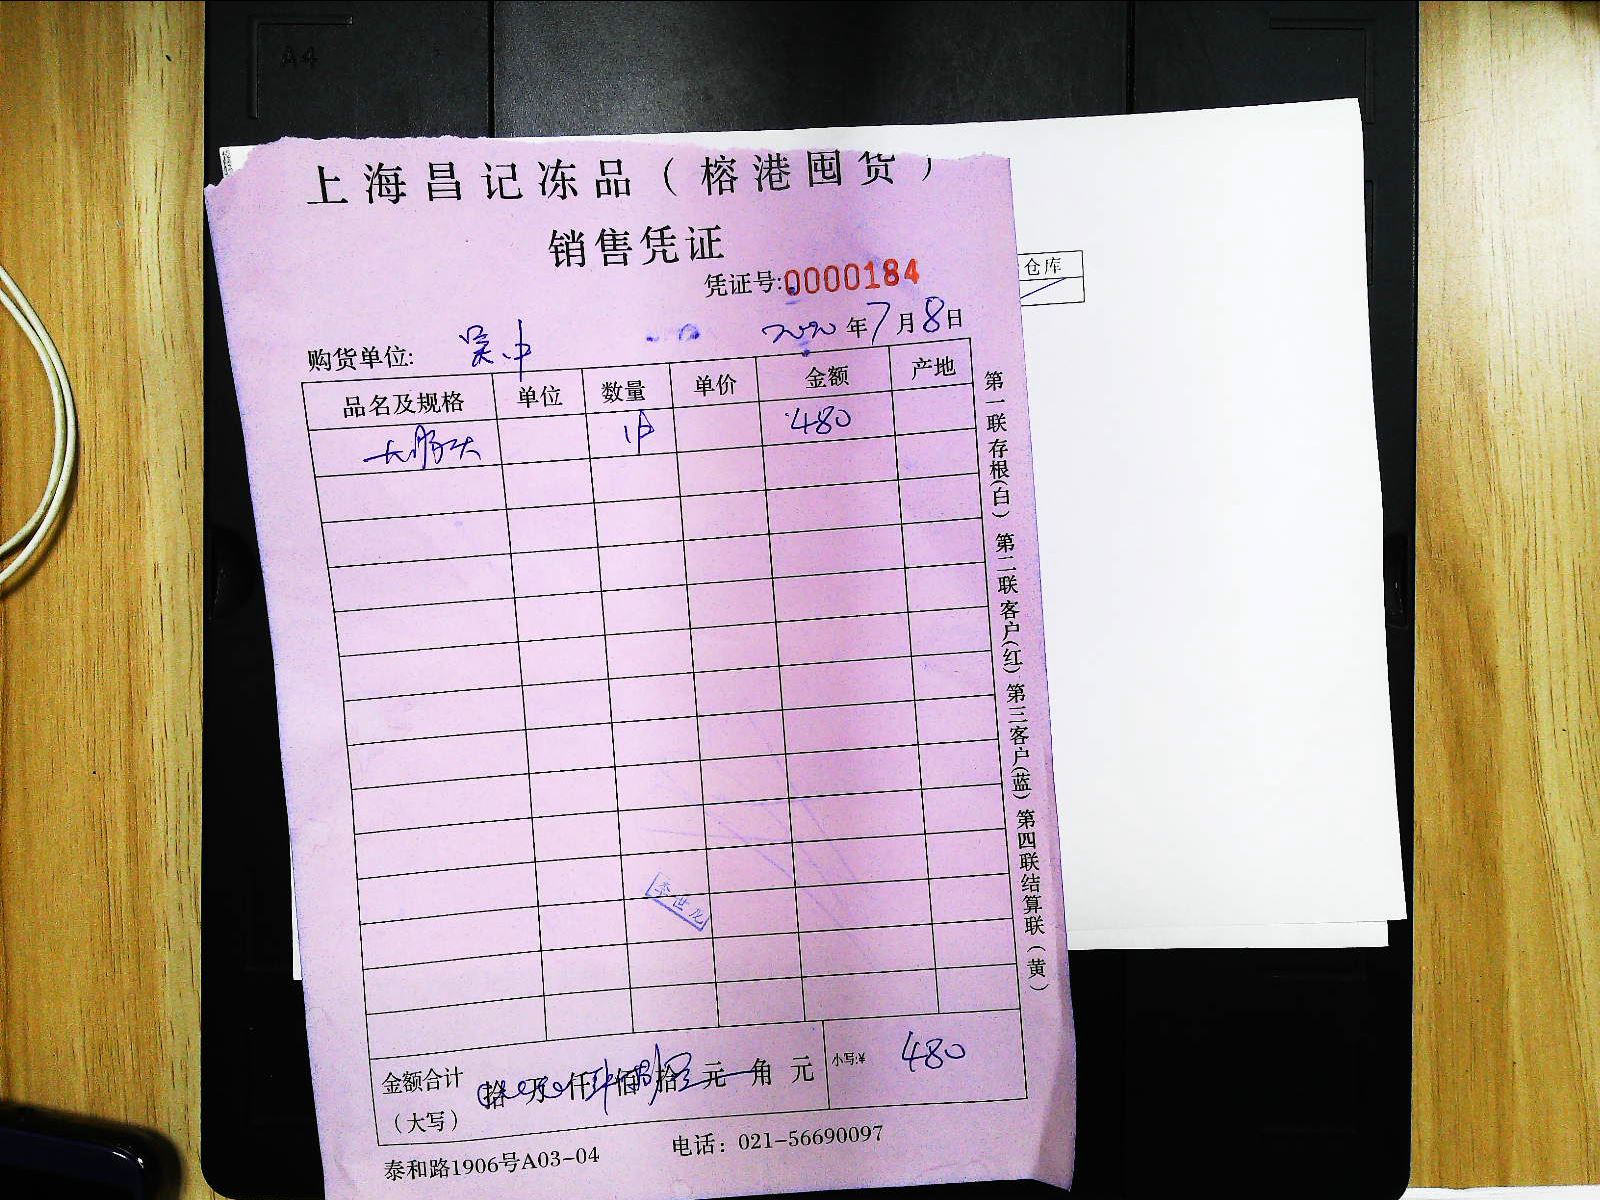 A4
上海昌记冻品（榕港囤货）
销售凭证
凭证号:0000184
仓库
购货单位: 吴中 2020年7月8日
品名及规格 单位 数量 单价 金额 产地
大肠头 1件 480
第一联存根(白) 第二联客户(红) 第三客户(蓝) 第四联结算联(黄)
李世龙
金额合计 拾 万 仟 佰 拾 元 角 元 小写:¥ 480
（大写）
泰和路1906号A03-04 电话：021-56690097